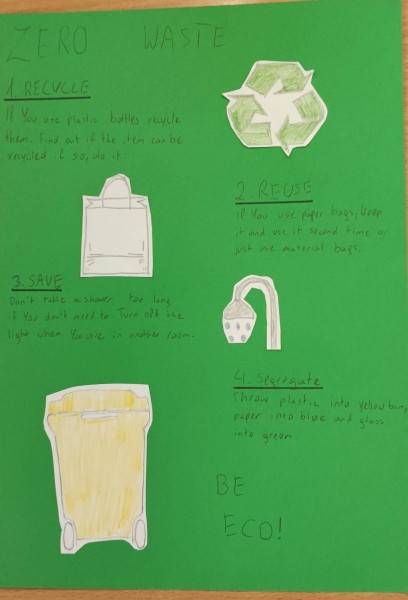 ZERO WASTE
1. RECYCLE
If You use plastic bottles recycle
them. Find out if the item can be
recycled if so, do it.
2. REUSE
If You use paper bags, keep
it and use it second time or
just use material bags.
3. SAVE
Don't take a shower too long
if You don't need to. Turn off the
light when You are in another room.
4. Segregate
Throw plastic into yellow bin,
paper into blue and glass
into green
BE
ECO!